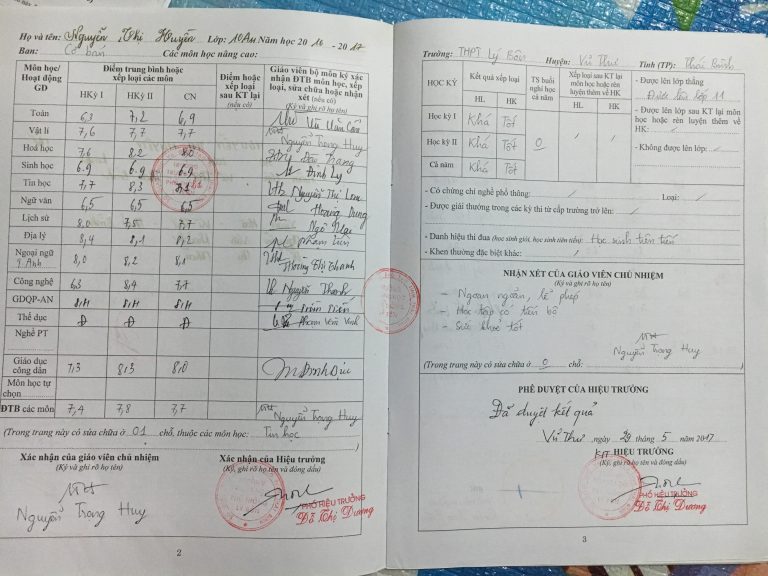 Họ và tên: Nguyễn Thị Huyền Lớp: 10A11 Năm học 2016 - 2017
Ban: Cơ bản Các môn học nâng cao:
Môn học/ Hoạt động GD
Điểm trung bình hoặc xếp loại các môn
HKỳ I HKỳ II CN
Điểm hoặc xếp loại sau KT lại (nếu có)
Giáo viên bộ môn ký xác nhận ĐTB môn học, xếp loại, sửa chữa hoặc nhận xét (nếu có)
(Ký và ghi rõ họ tên)
Toán 6,3 7,2 6,9
Vật lí 7,6 7,7 7,7 Nguyễn Trọng Huy
Hoá học 7,6 8,2 8,0
Sinh học 6.9 6.9 6.9 Đinh Ly
Tin học 7,7 8,3 8,1
Ngữ văn 6,5 6,5 6,5
Lịch sử 8,0 7,5 7,7
Địa lý 8,4 8,1 8,2
Ngoại ngữ T. Anh 8,0 8,2 8,1
Công nghệ 6,3 8,4 7,7
GDQP-AN 8,1 8,1 8,1
Thể dục Đ Đ Đ
Nghề PT
Giáo dục công dân 7,3 8,3 8,0
Môn học tự chọn
ĐTB các môn 7,4 7,8 7,7 Nguyễn Trọng Huy
(Trong trang này có sửa chữa ở 01 chỗ, thuộc các môn học: Tin học
Xác nhận của giáo viên chủ nhiệm
(Ký và ghi rõ họ tên)
Nguyễn Trọng Huy
Xác nhận của Hiệu trưởng
(Ký, ghi rõ họ tên và đóng dấu)
PHÓ HIỆU TRƯỞNG
Đỗ Thị Dương
2
Trường: THPT Lý Bôn Huyện: Vũ Thư Tỉnh (TP): Thái Bình
HỌC KỲ
Kết quả xếp loại
HL HK
TS buổi nghỉ học cả năm
Xếp loại sau KT lại môn học hoặc rèn luyện thêm về HK
HL HK
Học kỳ I Khá Tốt
Học kỳ II Khá Tốt 0 / /
Cả năm Khá Tốt
- Được lên lớp thẳng
Được lên lớp 11
- Được lên lớp sau KT lại môn học hoặc rèn luyện thêm về HK: /
- Không được lên lớp: /
- Có chứng chỉ nghề phổ thông: / Loại: /
- Được giải thưởng trong các kỳ thi từ cấp trường trở lên: /
- Danh hiệu thi đua (học sinh giỏi, học sinh tiên tiến): Học sinh tiên tiến
- Khen thưởng đặc biệt khác: /
NHẬN XÉT CỦA GIÁO VIÊN CHỦ NHIỆM
(Ký và ghi rõ họ tên)
- Ngoan ngoãn, lễ phép
- Học tập có tiến bộ
- Sức khoẻ tốt
Nguyễn Trọng Huy
(Trong trang này có sửa chữa ở 0 chỗ:
PHÊ DUYỆT CỦA HIỆU TRƯỞNG
Đã duyệt kết quả
Vũ Thư, ngày 29 tháng 5 năm 2017
KT HIỆU TRƯỞNG
(Ký, ghi rõ họ tên và đóng dấu)
PHÓ HIỆU TRƯỞNG
Đỗ Thị Dương
3